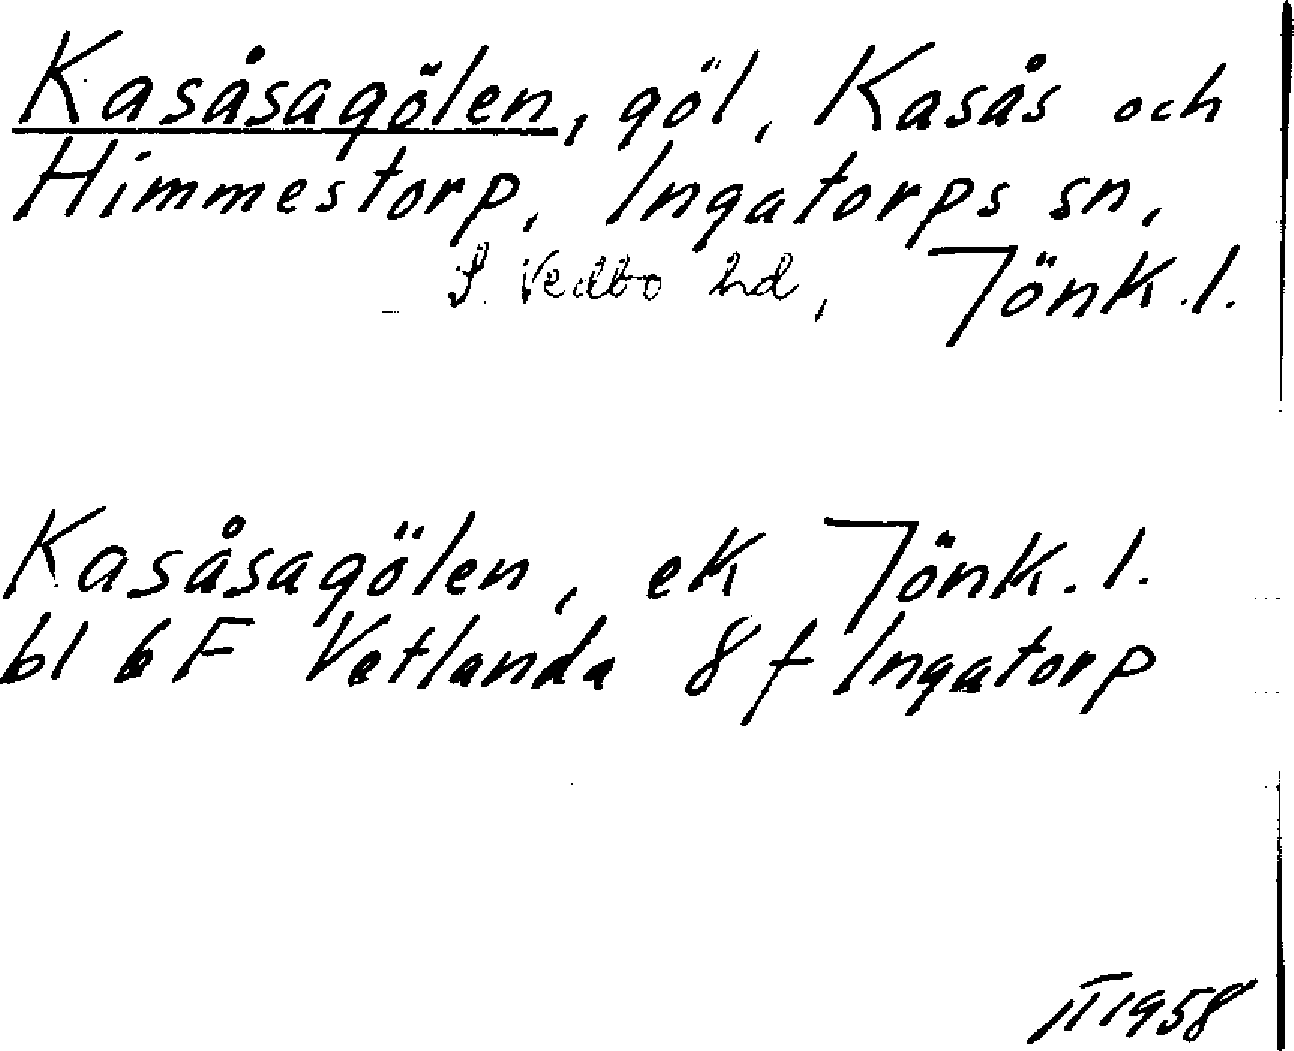 Kasåsagölen, göl, Kasås och
Himmestorp, Ingatorps sn,
S. Vedbo hd, Jönk. l.
Kasåsagölen, ek Jönk. l.
bl 6 F Vetlanda 8 f Ingatorp
II 1958